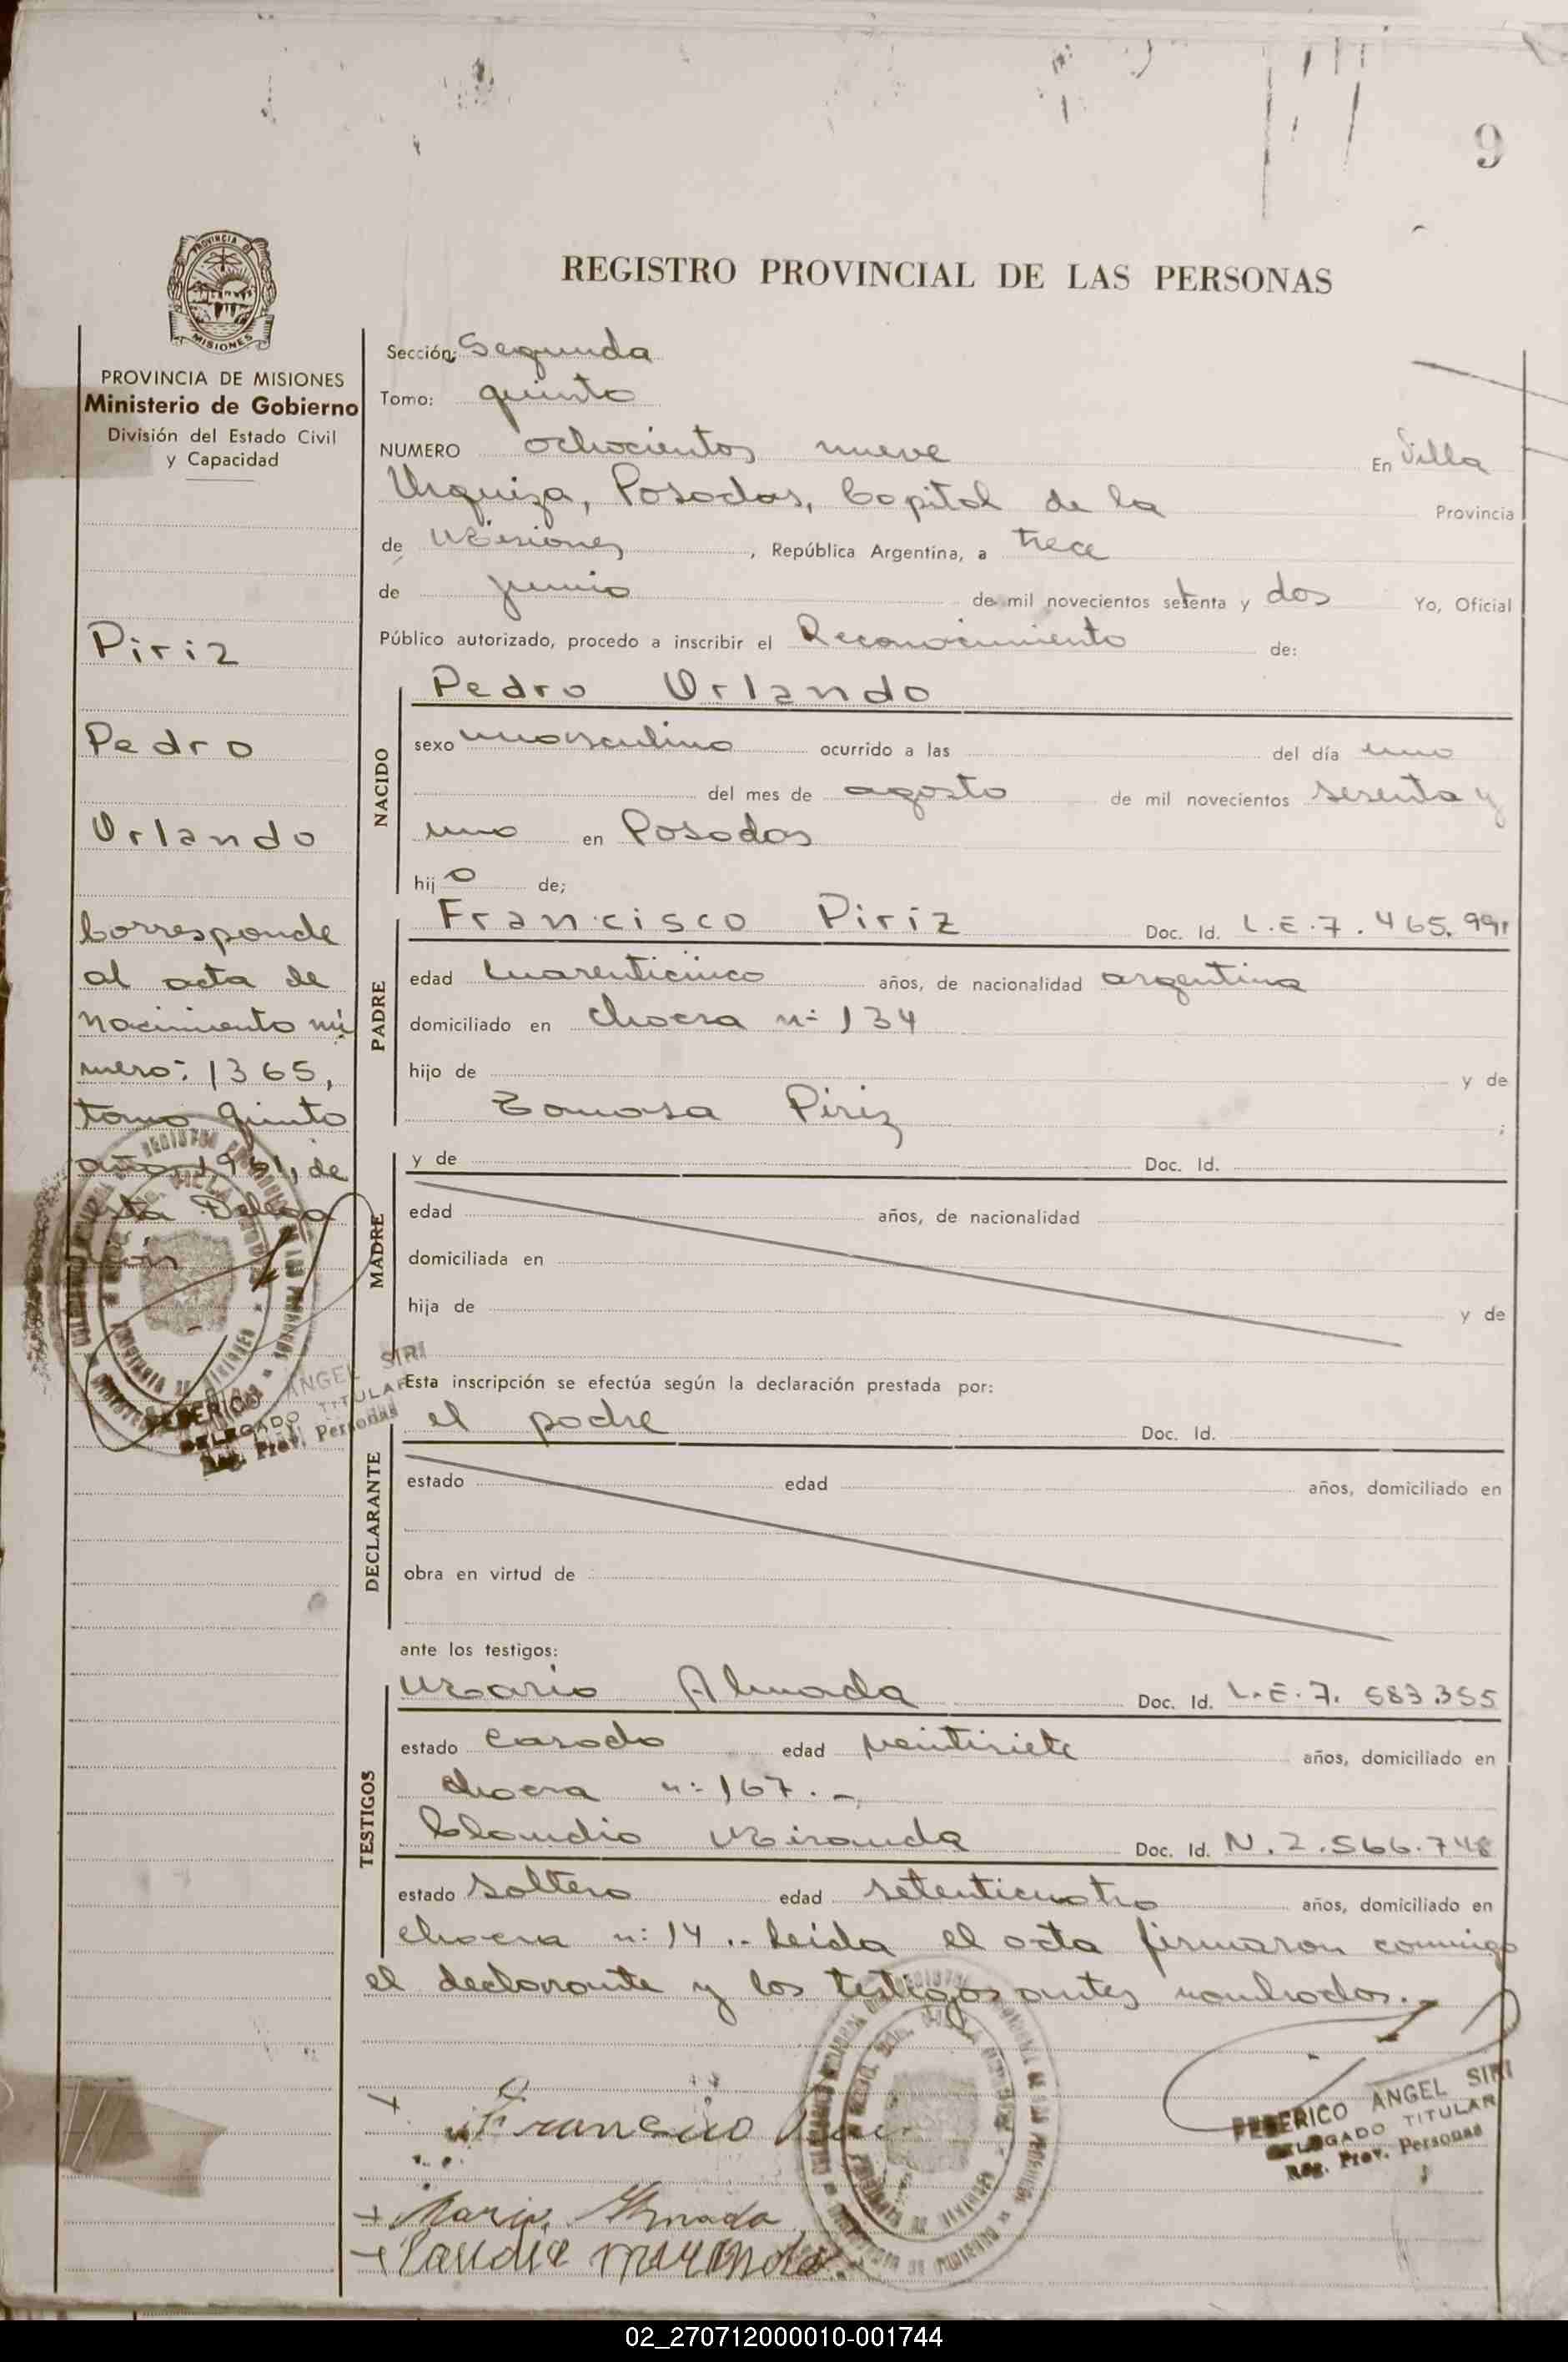 9
PROVINCIA DE MISIONES
Ministerio de Gobierno
División del Estado Civil
y Capacidad
Piriz
Pedro
Orlando
Corresponde
al acta de
nacimiento nú
mero: 1365,
tomo quinto
año 1961, de
esta Delega
ción
FEDERICO ANGEL SIRI
DELEGADO TITULAR
Reg. Prov. Personas
REGISTRO PROVINCIAL DE LAS PERSONAS
Sección: Segunda
Tomo: quinto
NUMERO ochocientos nueve En Villa
Urquiza, Posadas, Capital de la Provincia
de Misiones, República Argentina, a trece
de junio de mil novecientos setenta y dos Yo, Oficial
Público autorizado, procedo a inscribir el Reconocimiento de:
NACIDO
Pedro Orlando
sexo masculino ocurrido a las del día uno
del mes de agosto de mil novecientos sesenta y
uno en Posadas
hijo de;
PADRE
Francisco Piriz Doc. Id. L.E.7.465.991
edad cuarenticinco años, de nacionalidad argentina
domiciliado en chacra n: 134
hijo de y de
Tomasa Piriz ;
MADRE
y de Doc. Id.
edad años, de nacionalidad
domiciliada en
hija de y de
Esta inscripción se efectúa según la declaración prestada por:
DECLARANTE
el padre Doc. Id.
estado edad años, domiciliado en
obra en virtud de
ante los testigos:
TESTIGOS
Mario Almada Doc. Id. L.E.7.583.355
estado casado edad veintisiete años, domiciliado en
chacra n: 167.-
Claudio Miranda Doc. Id. N.2.566.748
estado soltero edad setenticuatro años, domiciliado en
chacra n: 14.- Leída el acta firmaron conmigo
el declarante y los testigos antes nombrados.-
FEDERICO ANGEL SIRI
DELEGADO TITULAR
Reg. Prov. Personas
+ Francisco
+ Mario Almada
+
02_270712000010-001744